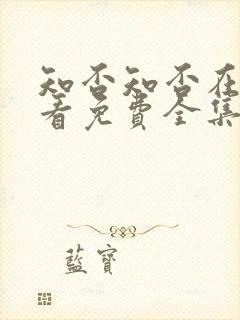 知否知否在
看免费全集
藍寶